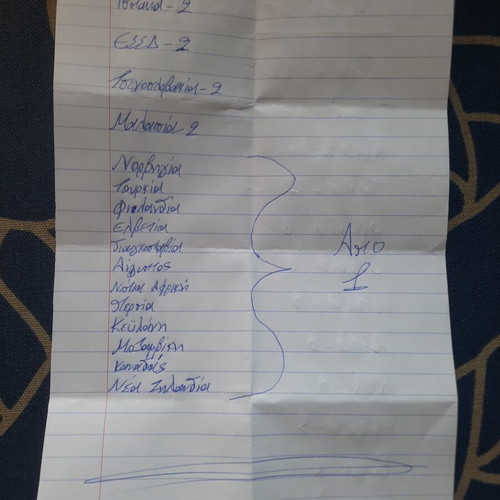 Ισπανία - 2
ΕΣΣΔ - 2
Τσεχοσλοβακία - 2
Μαλαισία - 2
Νορβηγία
Τουρκία
Φινλανδία
Ελβετία
Γιουγκοσλαβία
Αίγυπτος
Νότια Αφρική
Περσία
Κεϋλάνη
Μοζαμβίκη
Καναδάς
Νέα Ζηλανδία
Απο
1